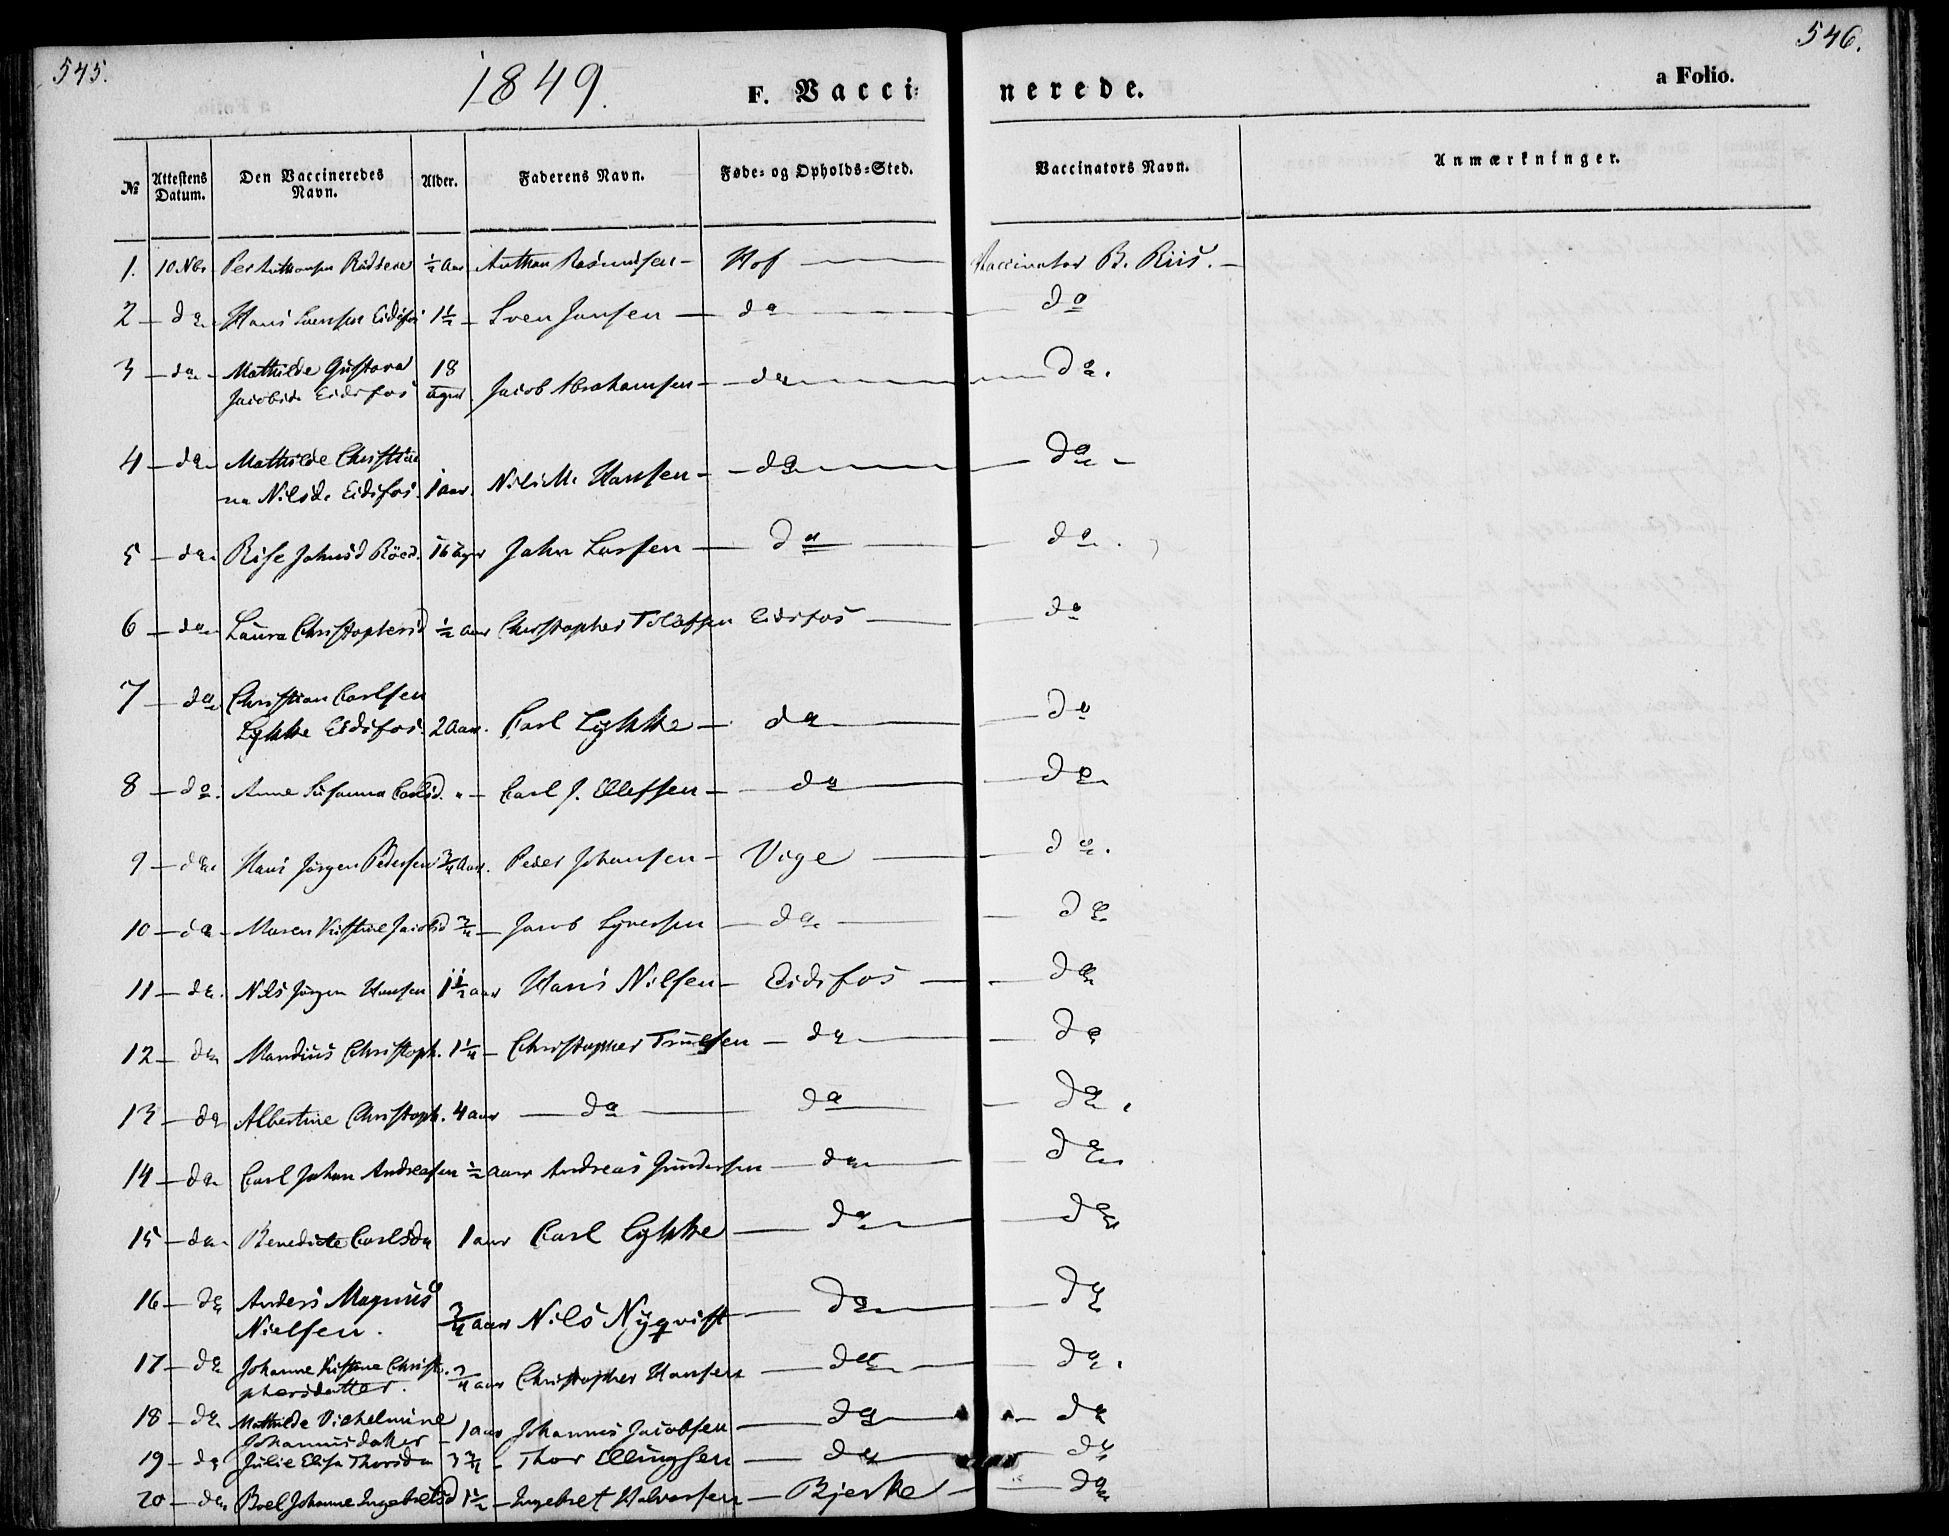 545.
1849.
F. Vacci-
nerede.
a Folio.
546.
№ Attestens Datum. Den Vaccineredes Navn. Alder. Faderens Navn. Føde- og Opholds-Sted. Vaccinators Navn. Anmærkninger.
1. 10 Nbr ½ Aar Anthon Rasmusen Hof Vaccinator B. Riis.
2 do Hans Svensen Eidsfos 1½ Sven Jansen do do
3 do Mathilde Gustava 18
Jacobsd. Eidsfos Uger Jacob Abrahamsen do do.
4 do Mathilde Christia
na Nilsd. Eidsfos. 1 aar. Nils M. Hansen do do
5 do Johnsd 16 Uger John Larsen do do.
6 do Laura Christophersd ½ aar Christopher Tolefsen Eidsfos do
7 do Christian Carlsen
Lykke Eidsfos. 2 Aar. Carl Lykke do do
8 do. Anne Susanna Carlsd. " Carl J. Ellefsen do do
9 do. Hans Jörgen Pedersen ¾ Aar. Peder Johansen Vige do.
10 do Maren Kristine Jacobsd ¾ Jacob Syversen do do
11 do. Nils Jörgen Hansen 1½ aar Hans Nilsen Eidsfos do
12 do Mandius Christoph. 1¼ Christopher Truelsen do do
13 do Albertine Christoph. 4 aar do do do.
14 do Carl Johan Andreasen ½ aar Andreas Gundersen do do
15 do Benedicte Carlsda 1 aar Carl Lykke do do
16 do Anders Magnus
Nielsen. ¾ aar Nils Nyqvist do do
17 do Johanne Kristine Christo
phersdatter. ¾ aar Christopher Hansen do do.
18 do Mathilde Vilhelmine
Johannisdatter 1 aar Johannis Jacobsen do do
19 do Julie Elise Thorsda 3¾ Thor Ellingsen do do
20 do Boel Johanne Ingebretsd 1½ Ingebret Halvorsen Bjerke do